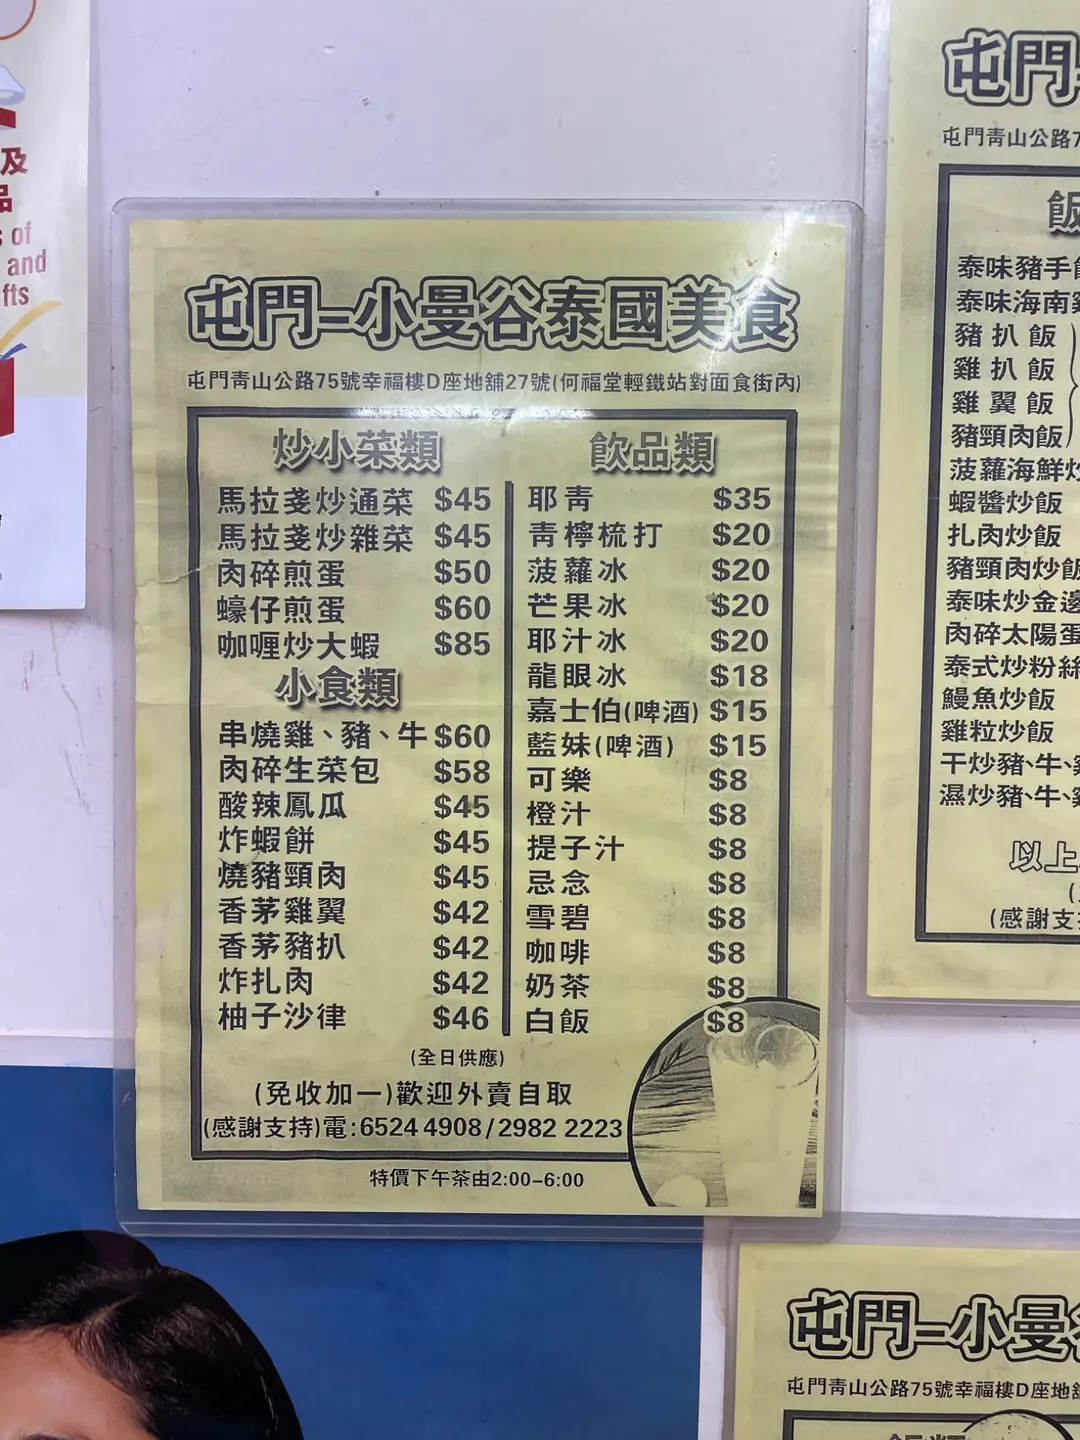 及
品
s of
and
fts
屯門–小曼谷泰國美食
屯門青山公路75號幸福樓D座地舖27號(何福堂輕鐵站對面食街內)
炒小菜類
馬拉盞炒通菜 $45
馬拉盞炒雜菜 $45
肉碎煎蛋 $50
蠔仔煎蛋 $60
咖喱炒大蝦 $85
小食類
串燒雞、豬、牛 $60
肉碎生菜包 $58
酸辣鳳瓜 $45
炸蝦餅 $45
燒豬頸肉 $45
香茅雞翼 $42
香茅豬扒 $42
炸扎肉 $42
柚子沙律 $46
飲品類
耶青 $35
青檸梳打 $20
菠蘿冰 $20
芒果冰 $20
耶汁冰 $20
龍眼冰 $18
嘉士伯(啤酒) $15
藍妹(啤酒) $15
可樂 $8
橙汁 $8
提子汁 $8
忌念 $8
雪碧 $8
咖啡 $8
奶茶 $8
白飯 $8
(全日供應)
(免收加一)歡迎外賣自取
(感謝支持)電:6524 4908/2982 2223
特價下午茶由2:00–6:00
屯門
屯門青山公路7
飯
泰味豬手
泰味海南
豬扒飯
雞扒飯
雞翼飯
豬頸肉飯
菠蘿海鮮炒
蝦醬炒飯
扎肉炒飯
豬頸肉炒飯
泰味炒金邊
肉碎太陽蛋
泰式炒粉絲
鰻魚炒飯
雞粒炒飯
干炒豬、牛、
濕炒豬、牛、
以上
(感謝支
屯門–小曼
屯門青山公路75號幸福樓D座地